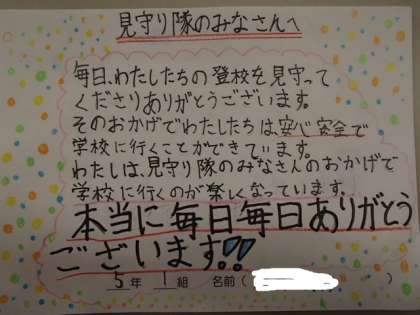 見守り隊のみなさんへ
毎日、わたしたちの登校を見守って
くださりありがとうございます。
そのおかげでわたしたちは安心安全で
学校に行くことができています。
わたしは、見守り隊のみなさんのおかげで
学校に行くのが楽しくなっています。
本当に毎日毎日ありがとう
ございます!!
5年 1組 名前( )